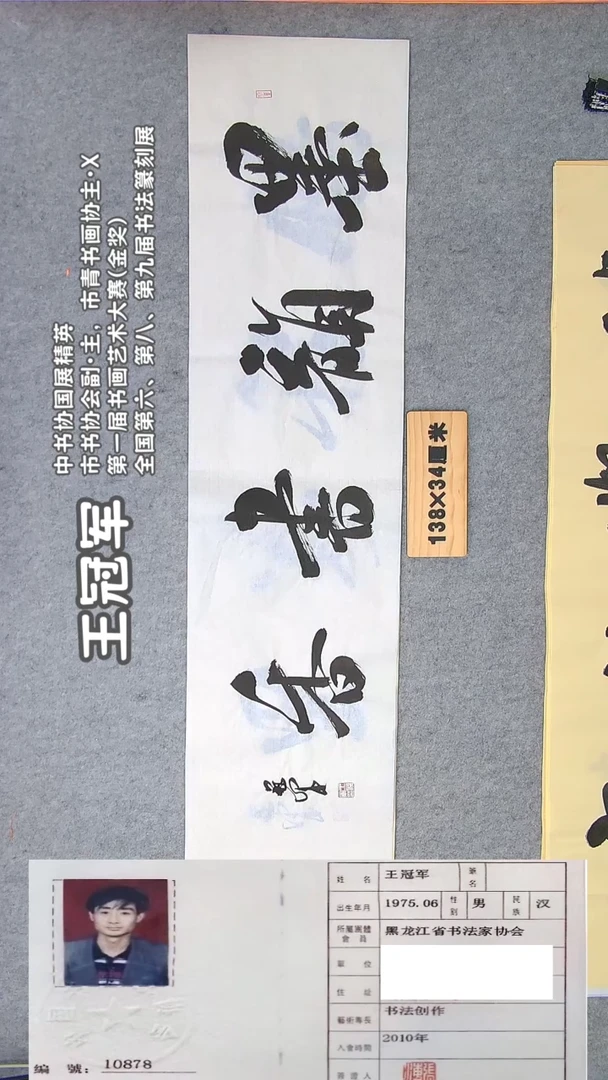 王冠军
中书协国展精英
市书协会副·主，市青书画协主·X
第一届书画艺术大赛(金奖)
全国第六、第八、第九届书法篆刻展
墨韻書香
138×34厘米
編 號: 10878
姓 名 王冠军 筆名
出生年月 1975.06 性别 男 民族 汉
所屬團體會員 黑龙江省书法家协会
單 位
住 址
藝術專長 书法创作
入會時間 2010年
簽證人